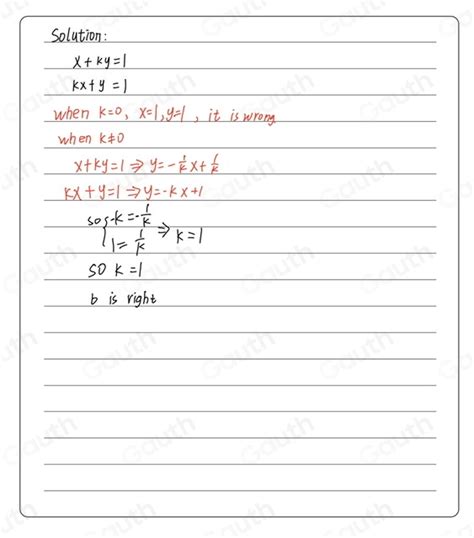 Solution:
x+ky=1
kx+y=1
when k=0, x=1,y=1, it is wrong
when k≠0
x+ky=1⇒y=-1/k x+1/k
kx+y=1⇒y=-kx+1
so {-k=-1/k
1=1/k ⇒ k=1
so k=1
b is right